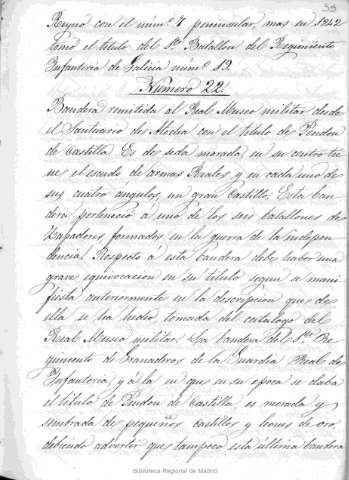 59
Reyno con el num.º 7 peninsular, mas en 1842
tomó el titulo del 1.er Batallon del Regimiento
Infanteria de Galicia num.º 19.
Número 22.
Bandera remitida al Real Museo militar desde
el Santuario de Atocha con el titulo de Pendon
de Castilla. Es de seda morada, en su centro tie
ne el escudo de armas Reales y en cada uno de
sus cuatro angulos, un gran Castillo. Esta ban
dera perteneció a uno de los seis batallones de
Zapadores formados en la guerra de la indepen
dencia. Respecto á esta bandera debe haber una
grave equivocacion en su titulo segun se mani
fiesta anteriormente en la descripcion que de
ella se ha hecho tomada del catalogo del
Real Museo militar. La bandera del 1.er Re
gimiento de Granaderos de la Guardia Real de
Infanteria, y a la que en su epoca se daba
el titulo de Pendon de Castilla es morada y
sembrada de pequeños castillos y leones de oro,
debiendo advertir que tampoco esta última bandera
Biblioteca Regional de Madrid